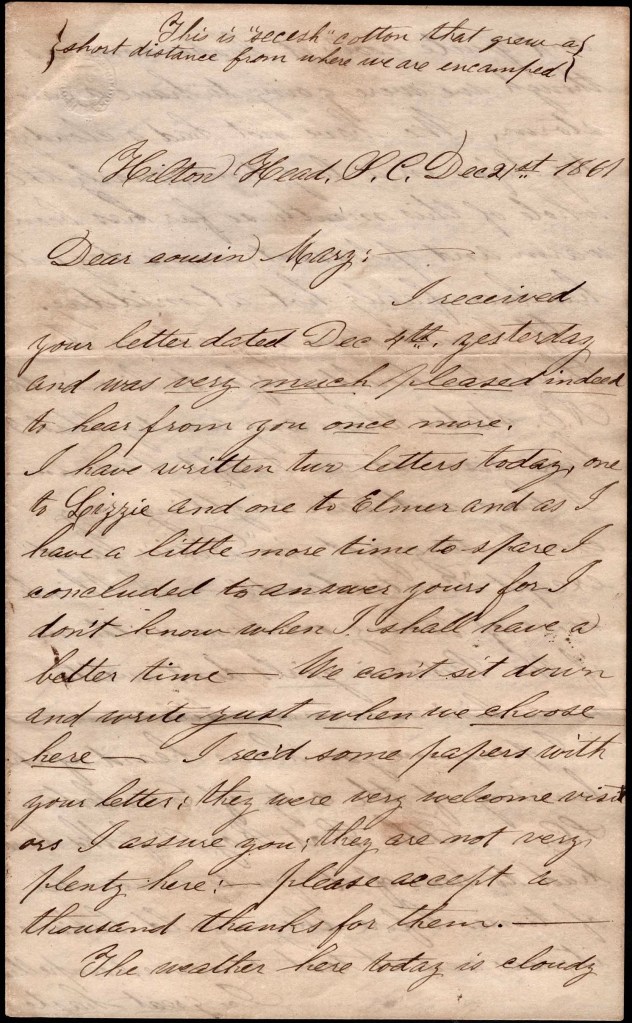 { This is "secesh" cotton that grew a }
{ short distance from where we are encamped }
Hilton Head, S. C. Dec 21st 1861
Dear cousin Mary:—
I received
your letter dated Dec 4th. yesterday
and was very much pleased indeed
to hear from you once more.
I have written two letters today, one
to Lizzie and one to Elmer and as I
have a little more time to spare I
concluded to answer yours for I
don't know when I shall have a
better time — We can't sit down
and write just when we choose
here — I rec'd some papers with
your letter; they were very welcome visit
ors I assure you; they are not very
plenty here:— please accept a
thousand thanks for them. —
The weather here today is cloudy